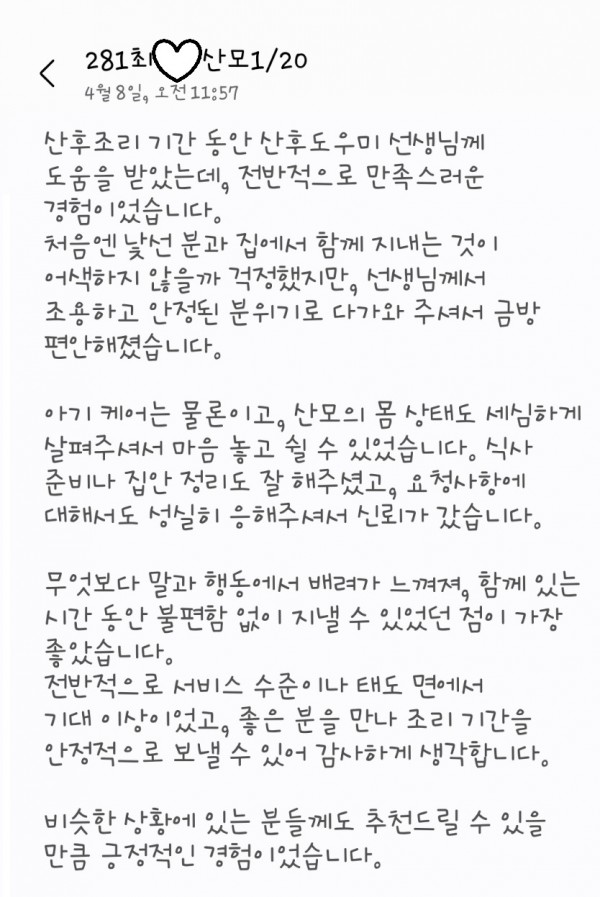 281최 산모1/20
4월 8일, 오전 11:57
산후조리 기간 동안 산후도우미 선생님께
도움을 받았는데, 전반적으로 만족스러운
경험이었습니다.
처음엔 낯선 분과 집에서 함께 지내는 것이
어색하지 않을까 걱정했지만, 선생님께서
조용하고 안정된 분위기로 다가와 주셔서 금방
편안해졌습니다.
아기 케어는 물론이고, 산모의 몸 상태도 세심하게
살펴주셔서 마음 놓고 쉴 수 있었습니다. 식사
준비나 집안 정리도 잘 해주셨고, 요청사항에
대해서도 성실히 응해주셔서 신뢰가 갔습니다.
무엇보다 말과 행동에서 배려가 느껴져, 함께 있는
시간 동안 불편함 없이 지낼 수 있었던 점이 가장
좋았습니다.
전반적으로 서비스 수준이나 태도 면에서
기대 이상이었고, 좋은 분을 만나 조리 기간을
안정적으로 보낼 수 있어 감사하게 생각합니다.
비슷한 상황에 있는 분들께도 추천드릴 수 있을
만큼 긍정적인 경험이었습니다.